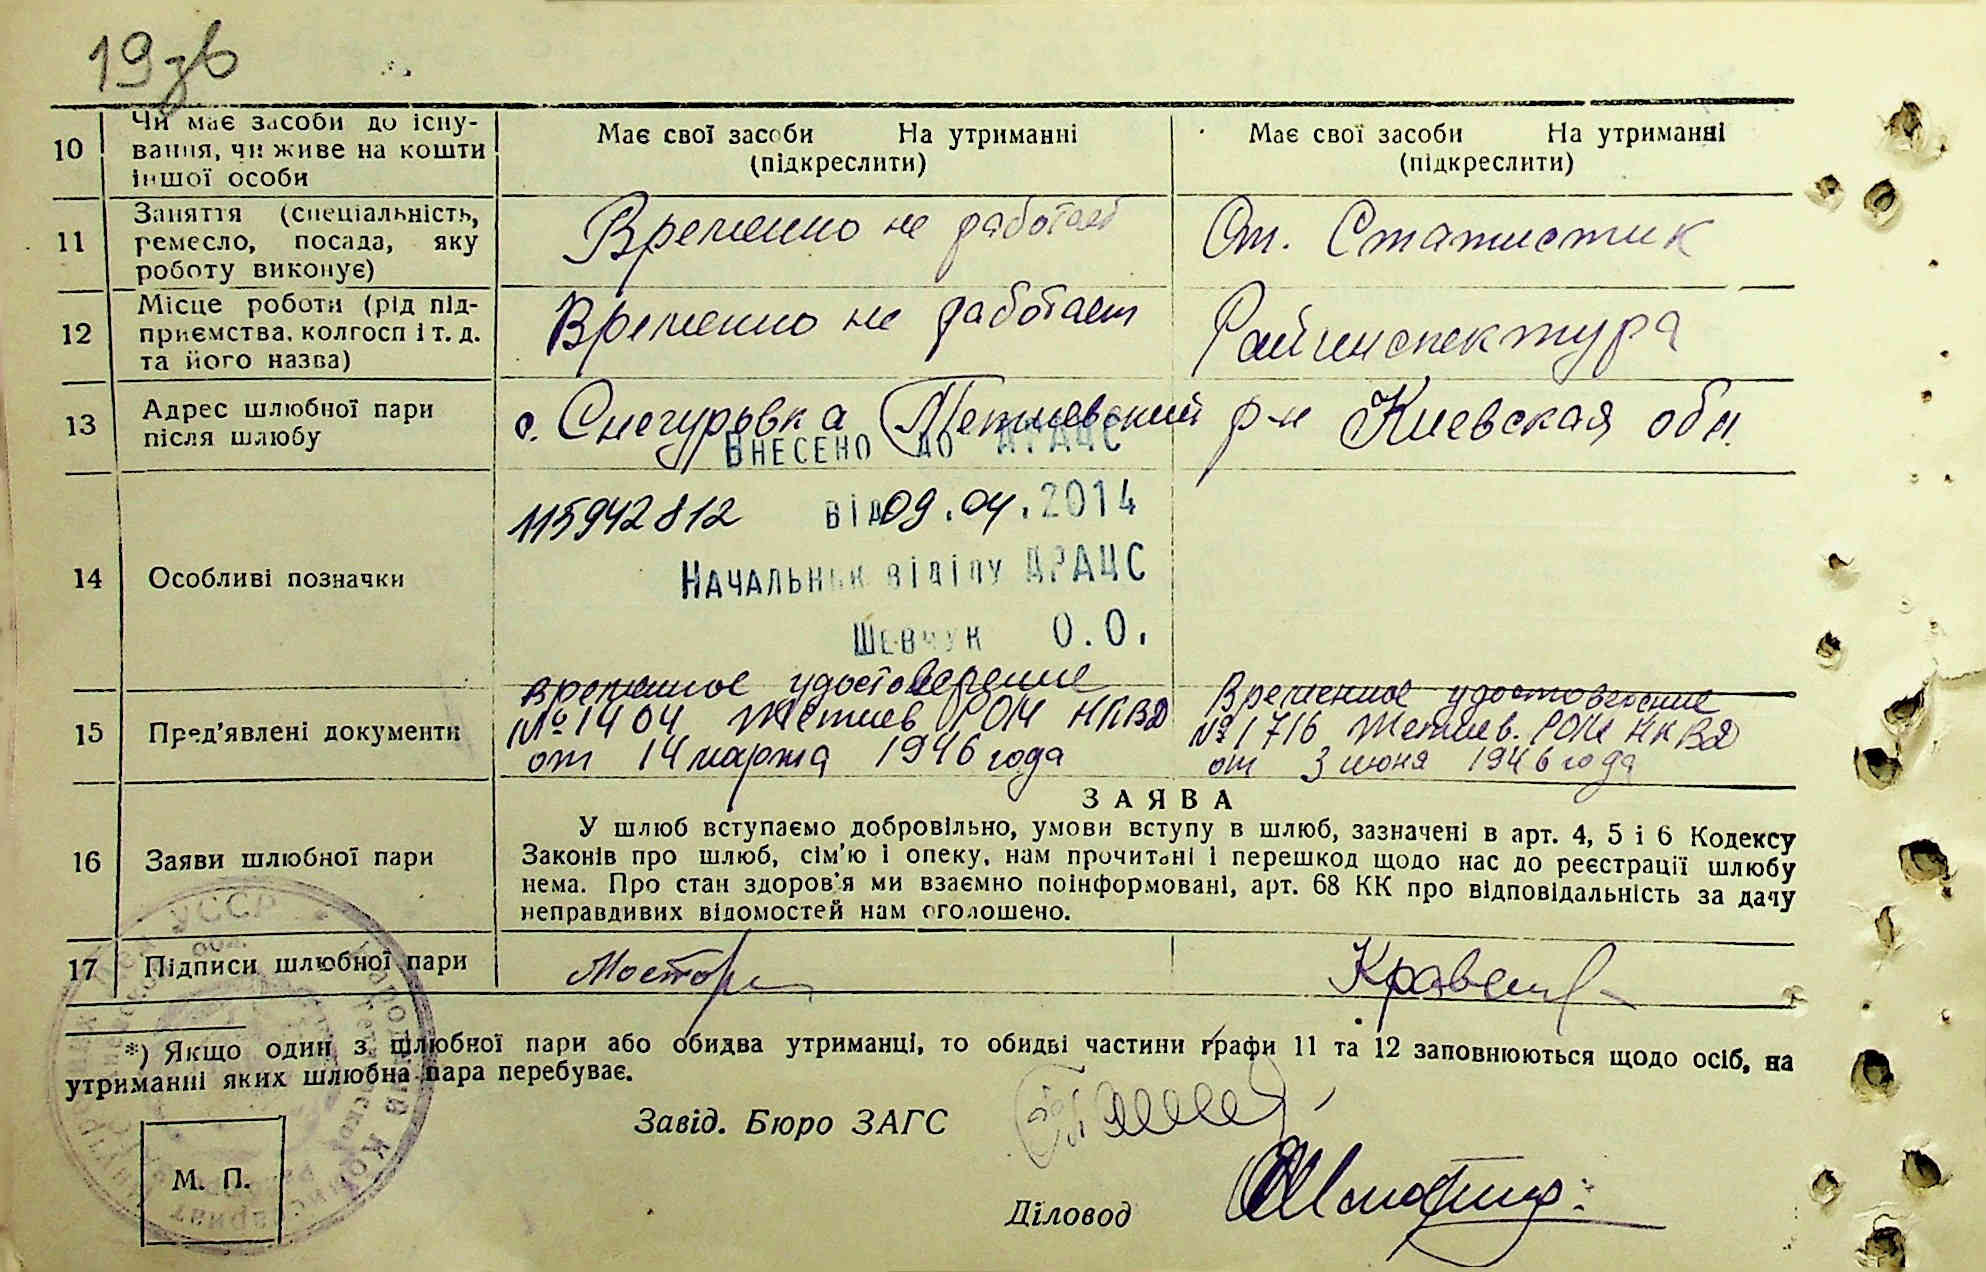 19зв
10 Чи має засоби до існу-
вання, чи живе на кошти
іншої особи
Має свої засоби На утриманні
(підкреслити)
Має свої засоби На утриманні
(підкреслити)
11 Заняття (спеціальність,
ремесло, посада, яку
роботу виконує)
Временно не работает
Ст. Статистик
12 Місце роботи (рід під-
приємства, колгосп і т. д.
та його назва)
Временно не работает
Райинспектура
13 Адрес шлюбної пари
після шлюбу
с. Снегуровка Тетиевский р-н Киевская обл.
Внесено до ДРАЦС
115942812 від 09.04.2014
Начальник відділу ДРАЦС
Шевчук О.О.
14 Особливі позначки
15 Пред'явлені документи
временное удостоверение
№ 1404 Тетиев РОМ НКВД
от 14 марта 1946 года
Временное удостоверение
№ 1716 Тетиев. РОМ НКВД
от 3 июня 1946 года
16 Заяви шлюбної пари
ЗАЯВА
У шлюб вступаємо добровільно, умови вступу в шлюб, зазначені в арт. 4, 5 і 6 Кодексу
Законів про шлюб, сім'ю і опеку, нам прочитані і перешкод щодо нас до реєстрації шлюбу
нема. Про стан здоров'я ми взаємно поінформовані, арт. 68 КК про відповідальність за дачу
неправдивих відомостей нам оголошено.
17 Підписи шлюбної пари
*) Якщо один з шлюбної пари або обидва утриманці, то обидві частини графи 11 та 12 заповнюються щодо осіб, на
утриманні яких шлюбна пара перебуває.
Завід. Бюро ЗАГС
М. П.
Діловод